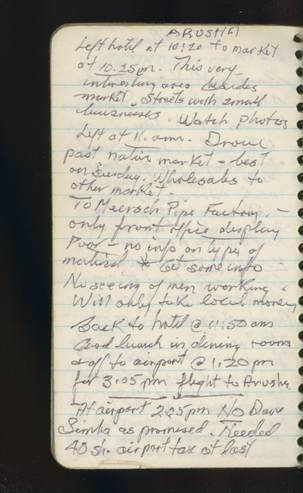 ARUSHA
Left hotel at 10:20 to market
at 10.25 pm. This very
interesting area besides
market. Streets with small
businesses. Watch photos
Left at 11. am. Drove
past native market - best
on Sunday. Wholesales to
other market.
To Meersch Pipe Factory -
only front office display
Poor - no info on types of
material * Get some info
No seeing of men working.
Will only take local money
Back to hotel @ 11:50 am
Good lunch in dining room
& off to airport @ 1:20 pm
for 3:05 pm flight to Arusha
At airport 2:25 pm No Dave
Simba as promised. Needed
40 sh. airport tax at last